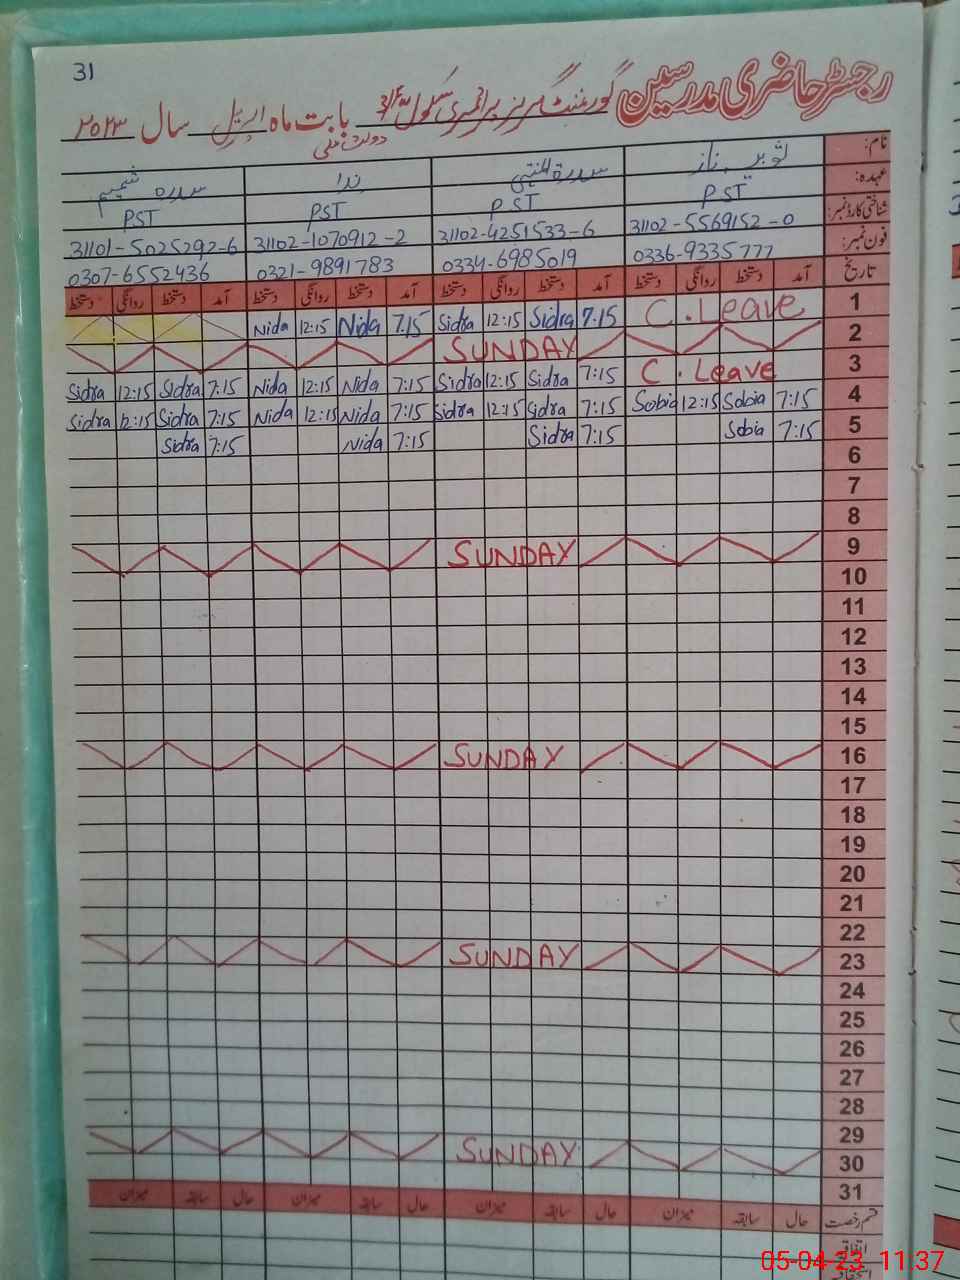 31
رجسٹر حاضری مدرسین گورنمنٹ گرلز پرائمری سکول بابت ماہ اپریل سال ۲۰۲۳
نام: ثوبیہ ناز سدرۃ المنتہیٰ ندا سدرہ شمیم
عہدہ: PST PST PST PST
شناختی کارڈ نمبر: 31102-5569152-0 31102-4251533-6 31102-1070912-2 31101-5025292-6
فون نمبر: 0336-9335777 0334-6985019 0321-9891783 0307-6552436
تاریخ آمد دستخط روانگی دستخط آمد دستخط روانگی دستخط آمد دستخط روانگی دستخط آمد دستخط روانگی دستخط
1 C. Leave 7:15 Sidra 12:15 Sidra 7:15 Nida 12:15 Nida
2 SUNDAY
3 C. Leave 7:15 Sidra 12:15 Sidra 7:15 Nida 12:15 Nida 7:15 Sidra 12:15 Sidra
4 7:15 Sobia 12:15 Sobia 7:15 Sidra 12:15 Sidra 7:15 Nida 12:15 Nida 7:15 Sidra 12:15 Sidra
5 7:15 Sobia 7:15 Sidra 7:15 Nida 7:15 Sidra
6
7
8
9 SUNDAY
10
11
12
13
14
15
16 SUNDAY
17
18
19
20
21
22
23 SUNDAY
24
25
26
27
28
29
30 SUNDAY
31
قسم رخصت حال سابقہ میزان حال سابقہ میزان حال سابقہ میزان حال سابقہ میزان
اتفاقیہ
05-04-23 11:37